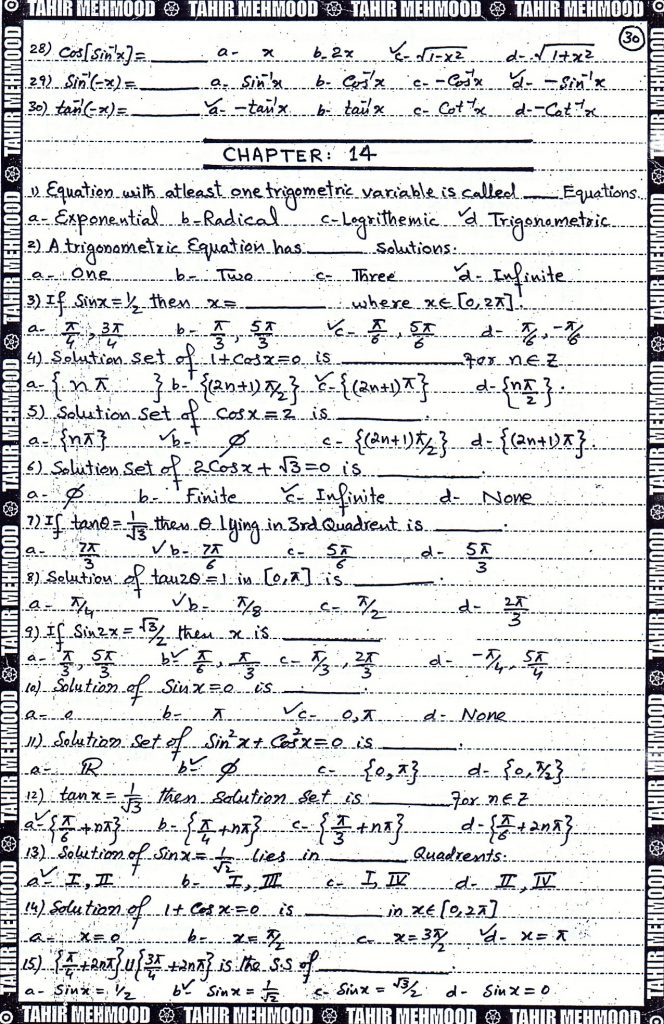 TAHIR MEHMOOD TAHIR MEHMOOD TAHIR MEHMOOD TAHIR MEHMOOD
30
28) Cos[Sin⁻¹x]= ______ a- x b- 2x ✓c- √1-x² d- √1+x²
29) Sin⁻¹(-x)= ______ a- Sin⁻¹x b- Cos⁻¹x c- -Cos⁻¹x ✓d- -Sin⁻¹x
30) tan⁻¹(-x)= ______ ✓a- -tan⁻¹x b- tan⁻¹x c- Cot⁻¹x d- -Cot⁻¹x
CHAPTER: 14
1) Equation with atleast one trigometric variable is called ____ Equations
a- Exponential b- Radical c- Logrithemic ✓d Trigonometric
2) A trigonometric Equation has ______ Solutions.
a- One b- Two c- Three ✓d- Infinite
3) If Sinx=1/2 then x= ______ where x∈[0,2π].
a- π/4, 3π/4 b- π/3, 5π/3 ✓c- π/6, 5π/6 d- π/6, -π/6
4) Solution set of 1+Cosx=0 is ______ For n∈Z
a- {nπ} b- {(2n+1)π/2} ✓c- {(2n+1)π} d- {nπ/2}.
5) Solution set of Cosx=2 is ______.
a- {nπ} ✓b- ∅ c- {(2n+1)π/2} d- {(2n+1)π}.
6) Solution Set of 2Cosx+√3=0 is ______.
a- ∅ b- Finite ✓c- Infinite d- None
7) If tanθ=1/√3 then θ lying in 3rd Quadrent is ______.
a- 7π/3 ✓b- 7π/6 c- 5π/6 d- 5π/3
8) Solution of tan2θ=1 in [0,π] is ______.
a- π/4 ✓b- π/8 c- π/2 d- 2π/3
9) If Sin2x=√3/2 then x is ______
a- π/3, 5π/3 b✓ π/6, π/3 c- π/3, 2π/3 d- -π/4, 5π/4
10) Solution of Sinx=0 is ______.
a- 0 b- π ✓c- 0,π d- None
11) Solution Set of Sin²x+Cos²x=0 is ______.
a- ℝ b✓ ∅ c- {0,π} d- {0,π/2}
12) tanx=1/√3 then solution set is ______ For n∈Z
a✓{π/6+nπ} b- {π/4+nπ} c- {π/3+nπ} d- {π/6+2nπ}
13) Solution of Sinx=1/√2 lies in ______ Quadrents.
a✓ I, II b- I, III c- I, IV d- II, IV
14) Solution of 1+Cosx=0 is ______ in x∈[0,2π]
a- x=0 b- x=π/2 c- x=3π/2 ✓d- x=π
15) {π/4+2nπ}∪{3π/4+2nπ} is the S.S of ______.
a- Sinx=1/2 b✓ Sinx=1/√2 c- Sinx=√3/2 d- Sinx=0
TAHIR MEHMOOD TAHIR MEHMOOD TAHIR MEHMOOD TAHIR MEHMOOD
TAHIR MEHMOOD TAHIR MEHMOOD TAHIR MEHMOOD TAHIR MEHMOOD TAHIR MEHMOOD TAHIR MEHMOOD
TAHIR MEHMOOD TAHIR MEHMOOD TAHIR MEHMOOD TAHIR MEHMOOD TAHIR MEHMOOD TAHIR MEHMOOD